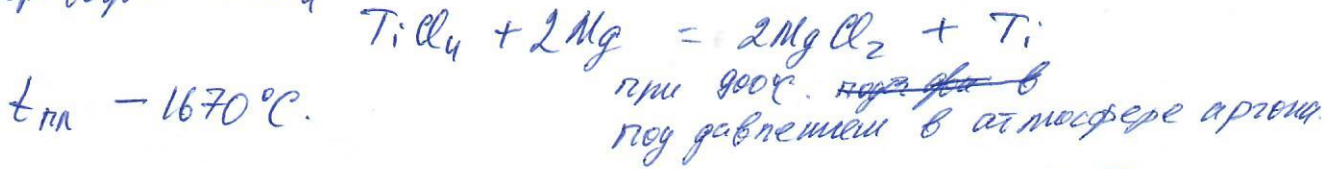 TiCl₄ + 2Mg = 2MgCl₂ + Ti
tпл — 1670°C. при 900°C.
под давлением в атмосфере аргона.